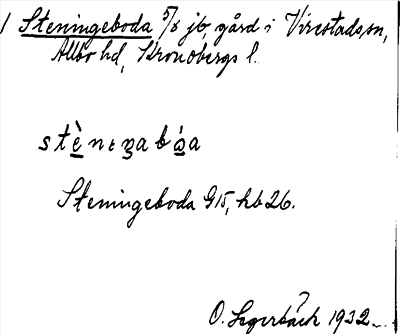 1 Steningeboda 5/8 jb, gård i Virestads sn,
Allbo hd, Kronobergs l.
stènıŋabòa
Steningeboda G15, hb 26.
O. Segerbäck 1932